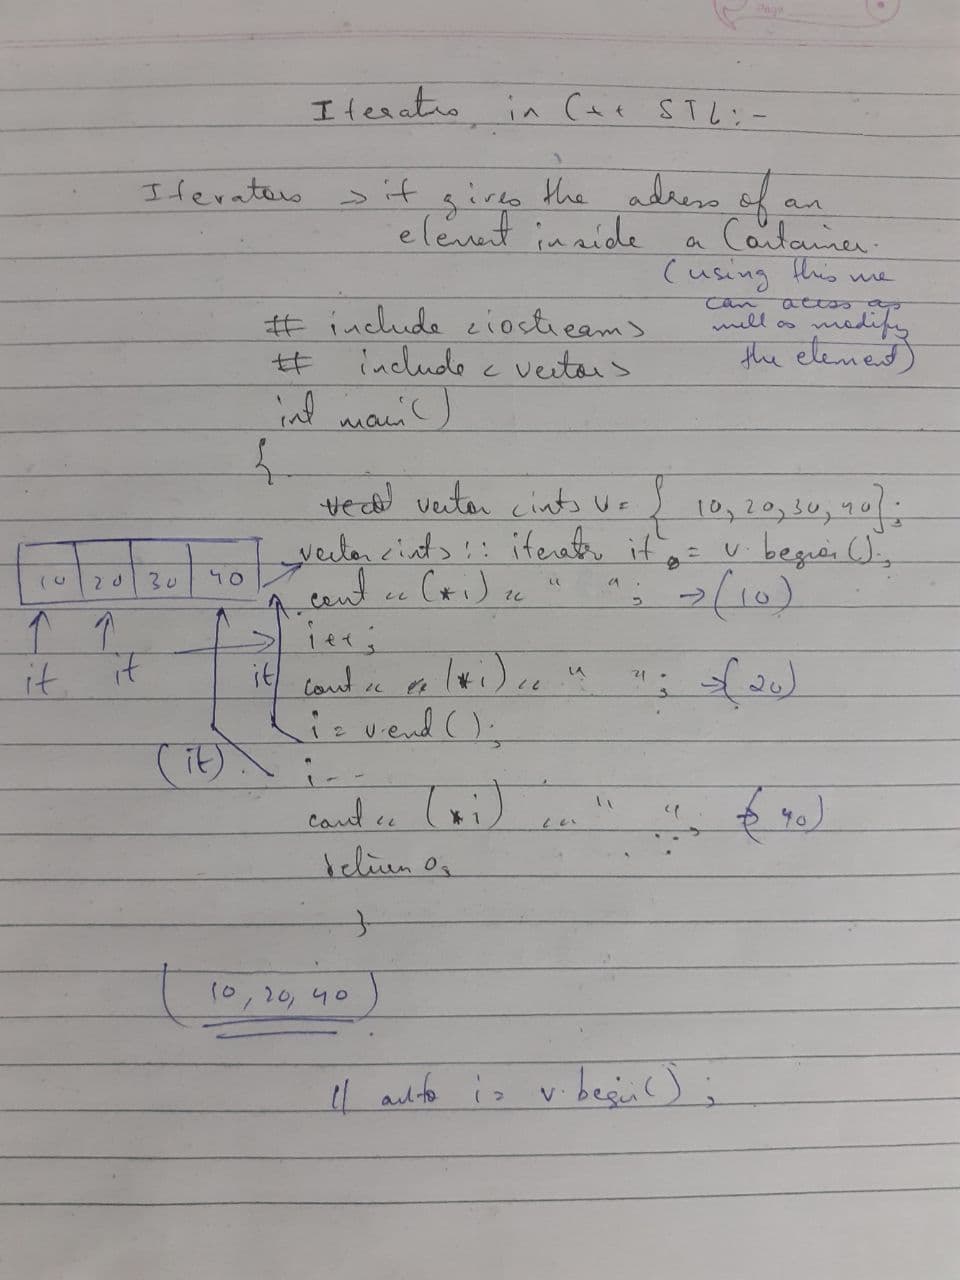 Page
Iterators in C++ STL:-
Iterators → it gives the adress of an
element inside a Container.
(using this we
can access as
well as modify
the element)
# include <iostream>
# include <vector>
int main()
{
vector <int> v = { 10, 20, 30, 40};
vector <int> :: iterator it = v.begin();
10 20 30 40
cout << (*i) << " "; → (10)
i++;
it it it
cout << (*i) << " "; → (20)
i = v.end();
(it).
i--
cout << (*i) << " "; → 40)
return 0;
}
(10, 20, 40)
// auto i = v.begin();